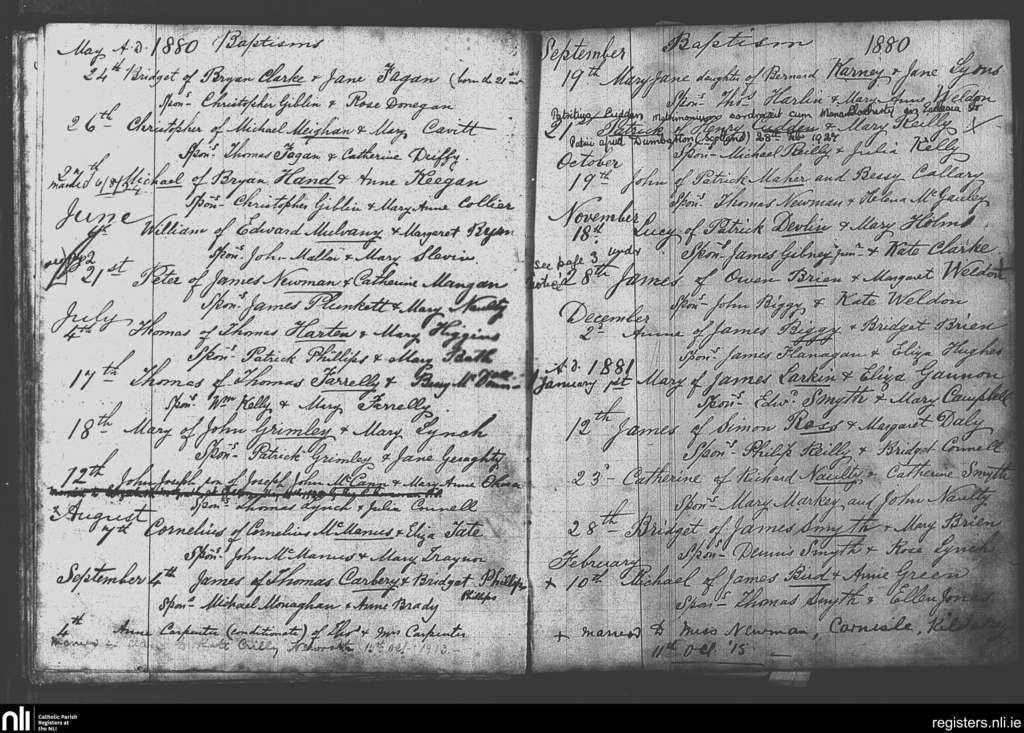 May A.D. 1880 Baptisms
24th Bridget of Bryan Clarke & Jane Fagan (born d. 21st
Sponrs Christopher Giblin & Rose Donegan
26th Christopher of Michael Meighan & Mary Cavitt
Sponrs Thomas Fagan & Catherine Duffy.
27th Michael of Bryan Hand & Anne Keegan
married
Sponrs Christopher Giblin & Mary Anne Collier
June
William of Edward Mulvany & Margaret Byrn
Sponrs John Mallin & Mary Slevin
21st Peter of James Newman & Catherine Mangan
Sponrs James Plunkett & Mary Naulty
July
4th Thomas of Thomas Harten & Mary Higgins
Sponrs Patrick Phillips & Mary Bath
17th Thomas of Thomas Farrelly &
Sponrs Wm Kelly & Mary Ferrelly
18th Mary of John Grimley & Mary Lynch
Sponrs Patrick Grimley & Jane Geughty
12th John Joseph son of Joseph John McCann & Mary Anne
Sponrs Thomas Lynch & Julia Connell
August
7th Cornelius of Cornelius McManus & Eliza Tate
Sponrs John McManus & Mary Traynor
September 4th James of Thomas Carbery & Bridget Phillips
Phillips
Sponrs Michael Monaghan & Anne Brady
4th Anne Carpenter (conditionate) of Thos & Mrs Carpenter
married 1913
September Baptism 1880
19th Mary Jane daughter of Bernard Karney & Jane Lyons
Sponrs Thos Harlin & Mary Anne Weldon
Patritius Cuddan matrimonium contraxit cum
21st Patrick of Henry Cuddan & Mary Reilly X
Dumbarton 28th 1927
Sponrs Michael Reilly & Julia Kelly
October
19th John of Patrick Maher and Bessy Callary
Sponrs Thomas Newman & Helena McGauley
November
18th Lucy of Patrick Devlin & Mary Holms
Sponrs James Gibney junr & Kate Clarke
See page 3
28th James of Owen Brien & Margaret Weldon
Sponrs John Biggy & Kate Weldon
December
2d Anne of James Biggy & Bridget Brien
Sponrs James Flanagan & Eliza Hughes
A.D. 1881
January 1st Mary of James Larkin & Eliza Gannon
Sponrs Edwd Smyth & Mary Campbell
12th James of Simon Ross & Margaret Daly
Sponrs Philip Reilly & Bridget Connell
23d Catherine of Richard Naulty & Catherine Smyth
Sponrs Mary Markey and John Naulty
28th Bridget of James Smyth & Mary Brien
Sponrs Dennis Smyth & Rose Lynch
February
+ 10th Michael of James Bird & Annie Green
Sponrs Thomas Smyth & Ellen Jones
+ married to Miss Newman,
11th Oct '15
nli Catholic Parish
Registers at
the NLI
registers.nli.ie